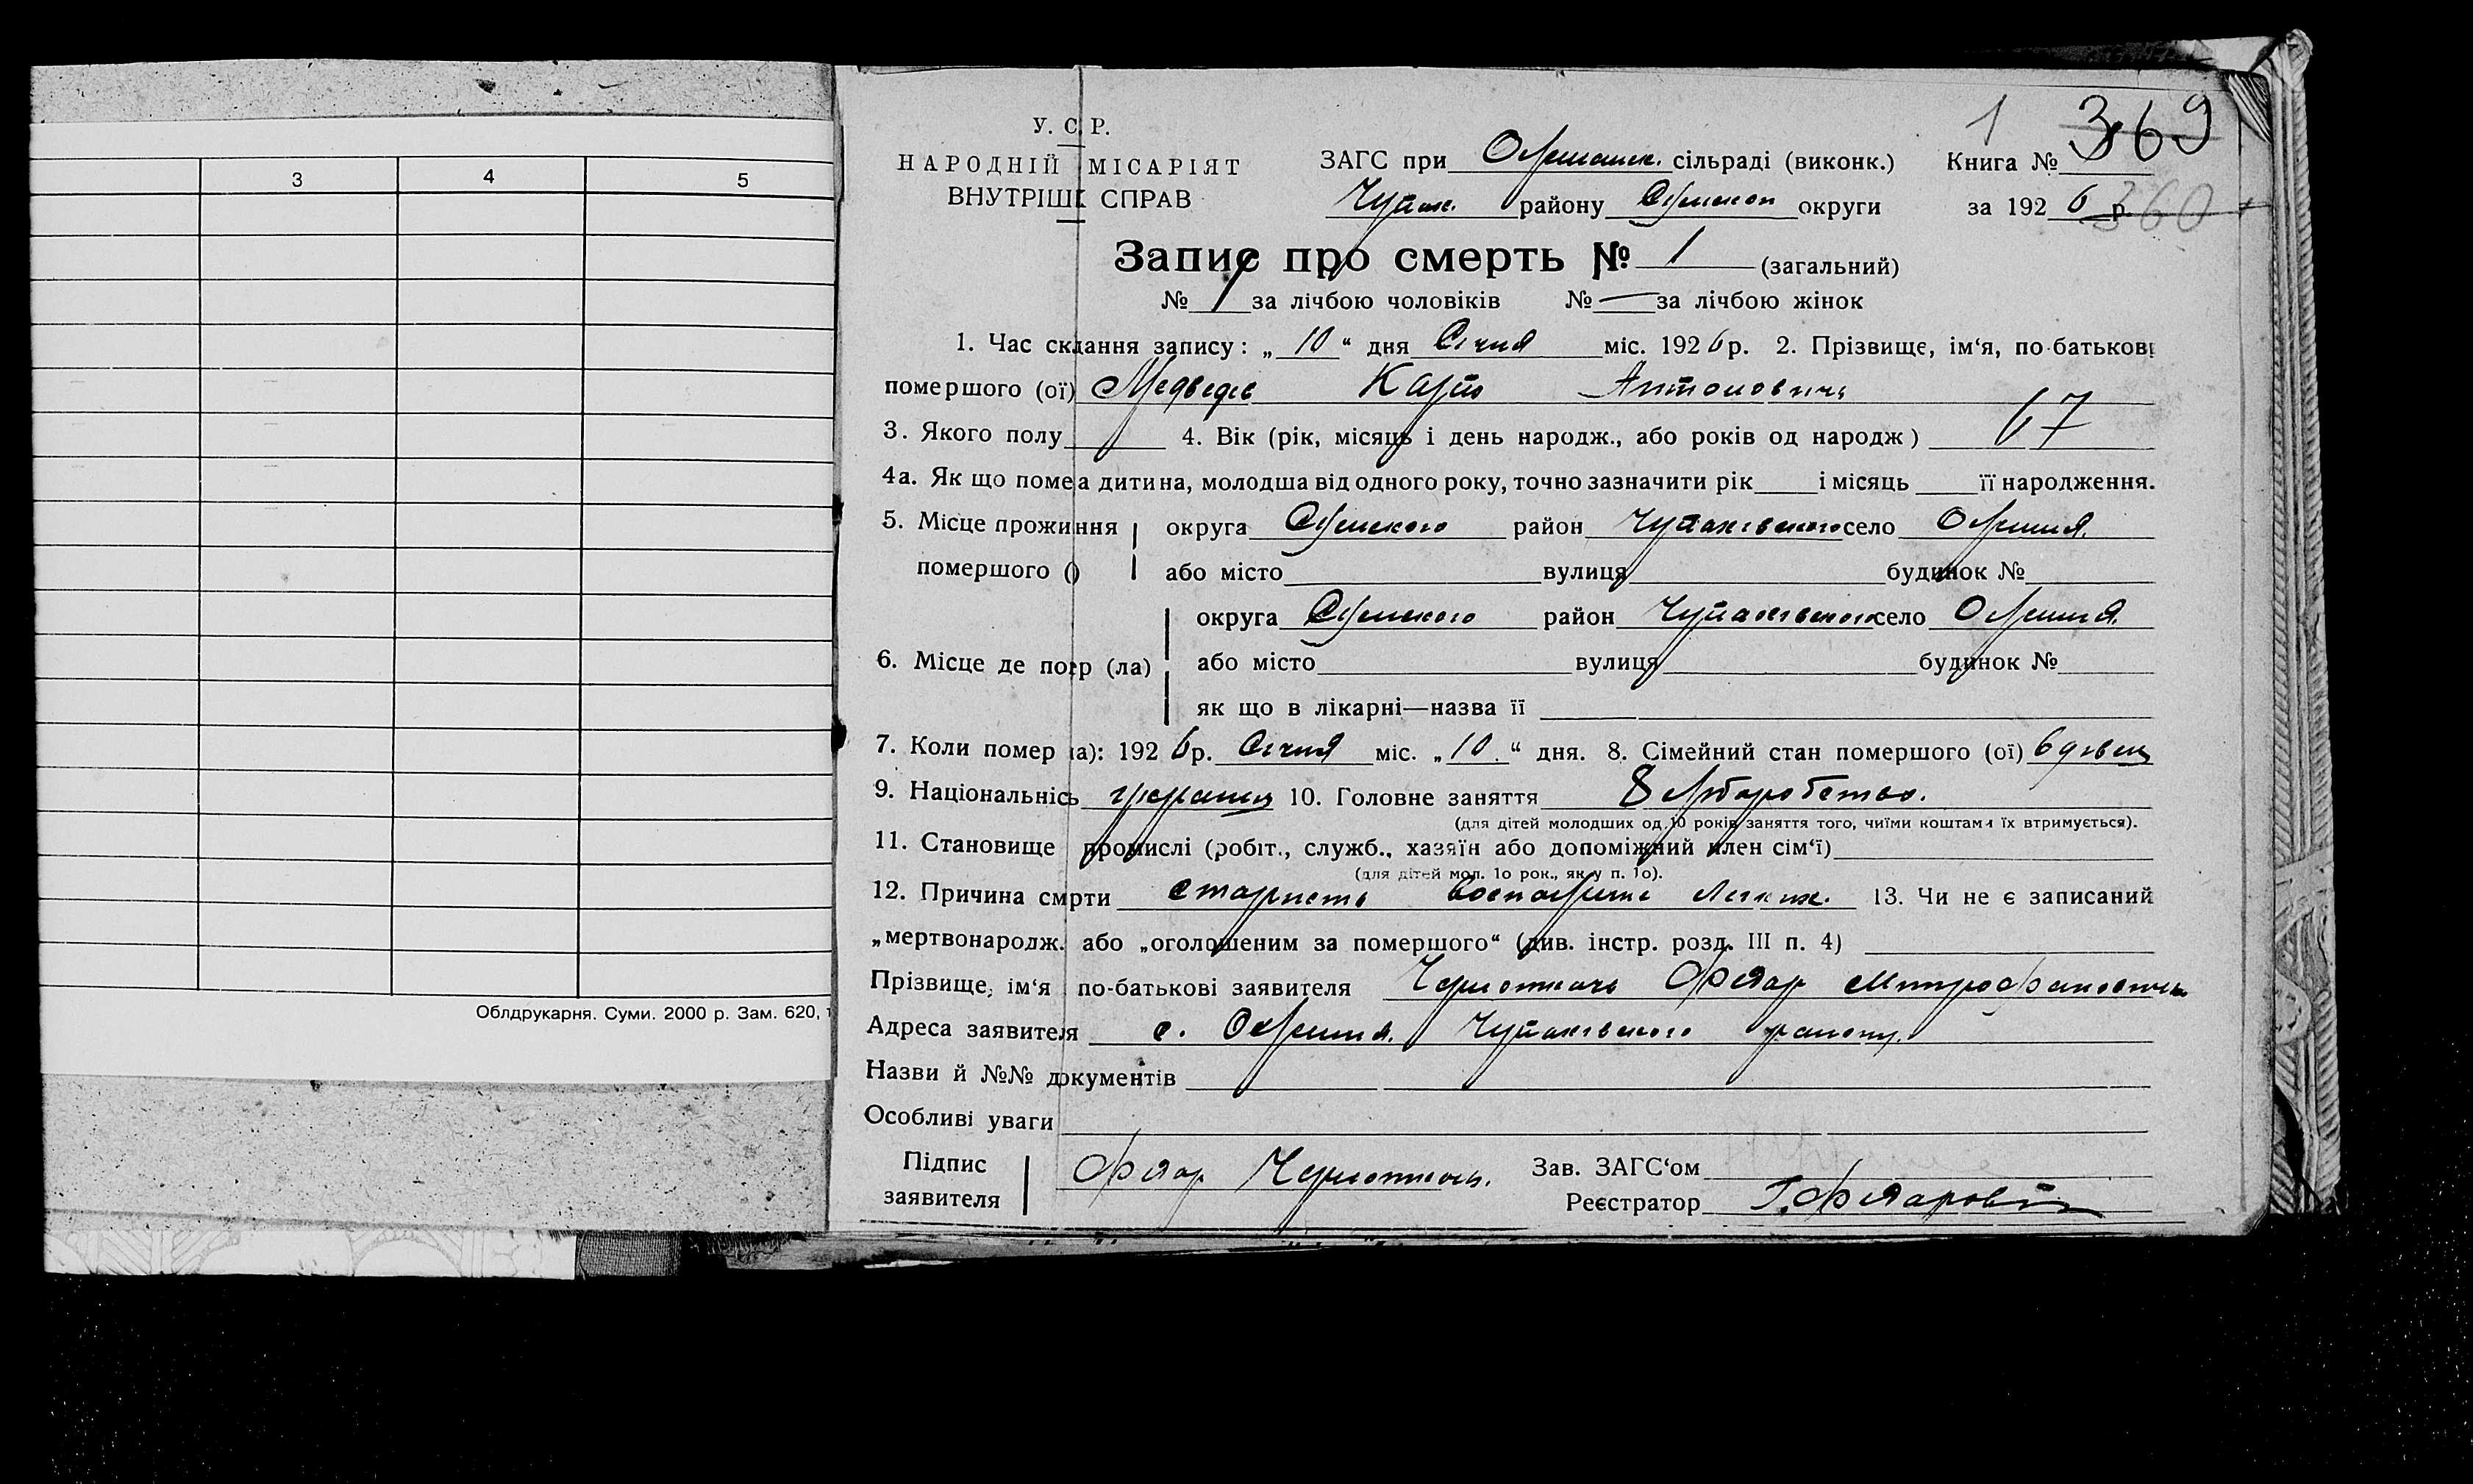 3 4 5
Облдрукарня. Суми. 2000 р. Зам. 620,
1 369
У. С. Р.
НАРОДНІЙ МІСАРІЯТ
ВНУТРІШ СПРАВ
ЗАГС при сільраді (виконк.) Книга №
Чупах. району округи за 1926 р. 360
Запис про смерть № 1 (загальний)
№ 1 за лічбою чоловіків № — за лічбою жінок
1. Час скдання запису: „10“ дня Січня міс. 1926 р. 2. Прізвище, ім‘я, по-батькові
помершого (ої) Медведєв Карп Антоновичь
3. Якого полу 4. Вік (рік, місяць і день народж., або років од народж) 67
4а. Як що помеа дитина, молодша від одного року, точно зазначити рік і місяць її народження.
5. Місце прожиння округа Сумського район Чупахівського село Олешня.
помершого () або місто вулиця будинок №
округа Сумського район Чупахівського село Олешня.
6. Місце де погр (ла) або місто вулиця будинок №
як що в лікарні—назва її
7. Коли помер ла): 1926 р. Січня міс. „10.“ дня. 8. Сімейний стан помершого (ої) вдівец
9. Національнісь 10. Головне заняття Хлібробство.
(для дітей молодших од 10 років заняття того, чиїми коштами їх втримується).
11. Становище промислі (робіт., служб., хазяїн або допоміжний член сім‘ї)
(для дітей мол. 10 рок., як у п. 10).
12. Причина смрти старисть воспаление легких. 13. Чи не є записаний
„мертвонародж. або „оголошеним за помершого“ (див. інстр. розд. III п. 4)
Прізвище, ім‘я по-батькові заявителя Федор Митрофановичь
Адреса заявителя с. Олешня. Чупахівського району.
Назви й №№ документів
Особливі уваги
Підпис
заявителя Федор
Зав. ЗАГС‘ом
Реєстратор